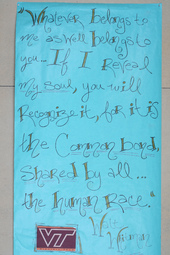 "Whatever belongs to
me as well belongs to
you... If I Reveal
my soul, you will
Recognize it, for it is
the Common bond,
shared by all...
the human Race."
Walt
Whitman
VT